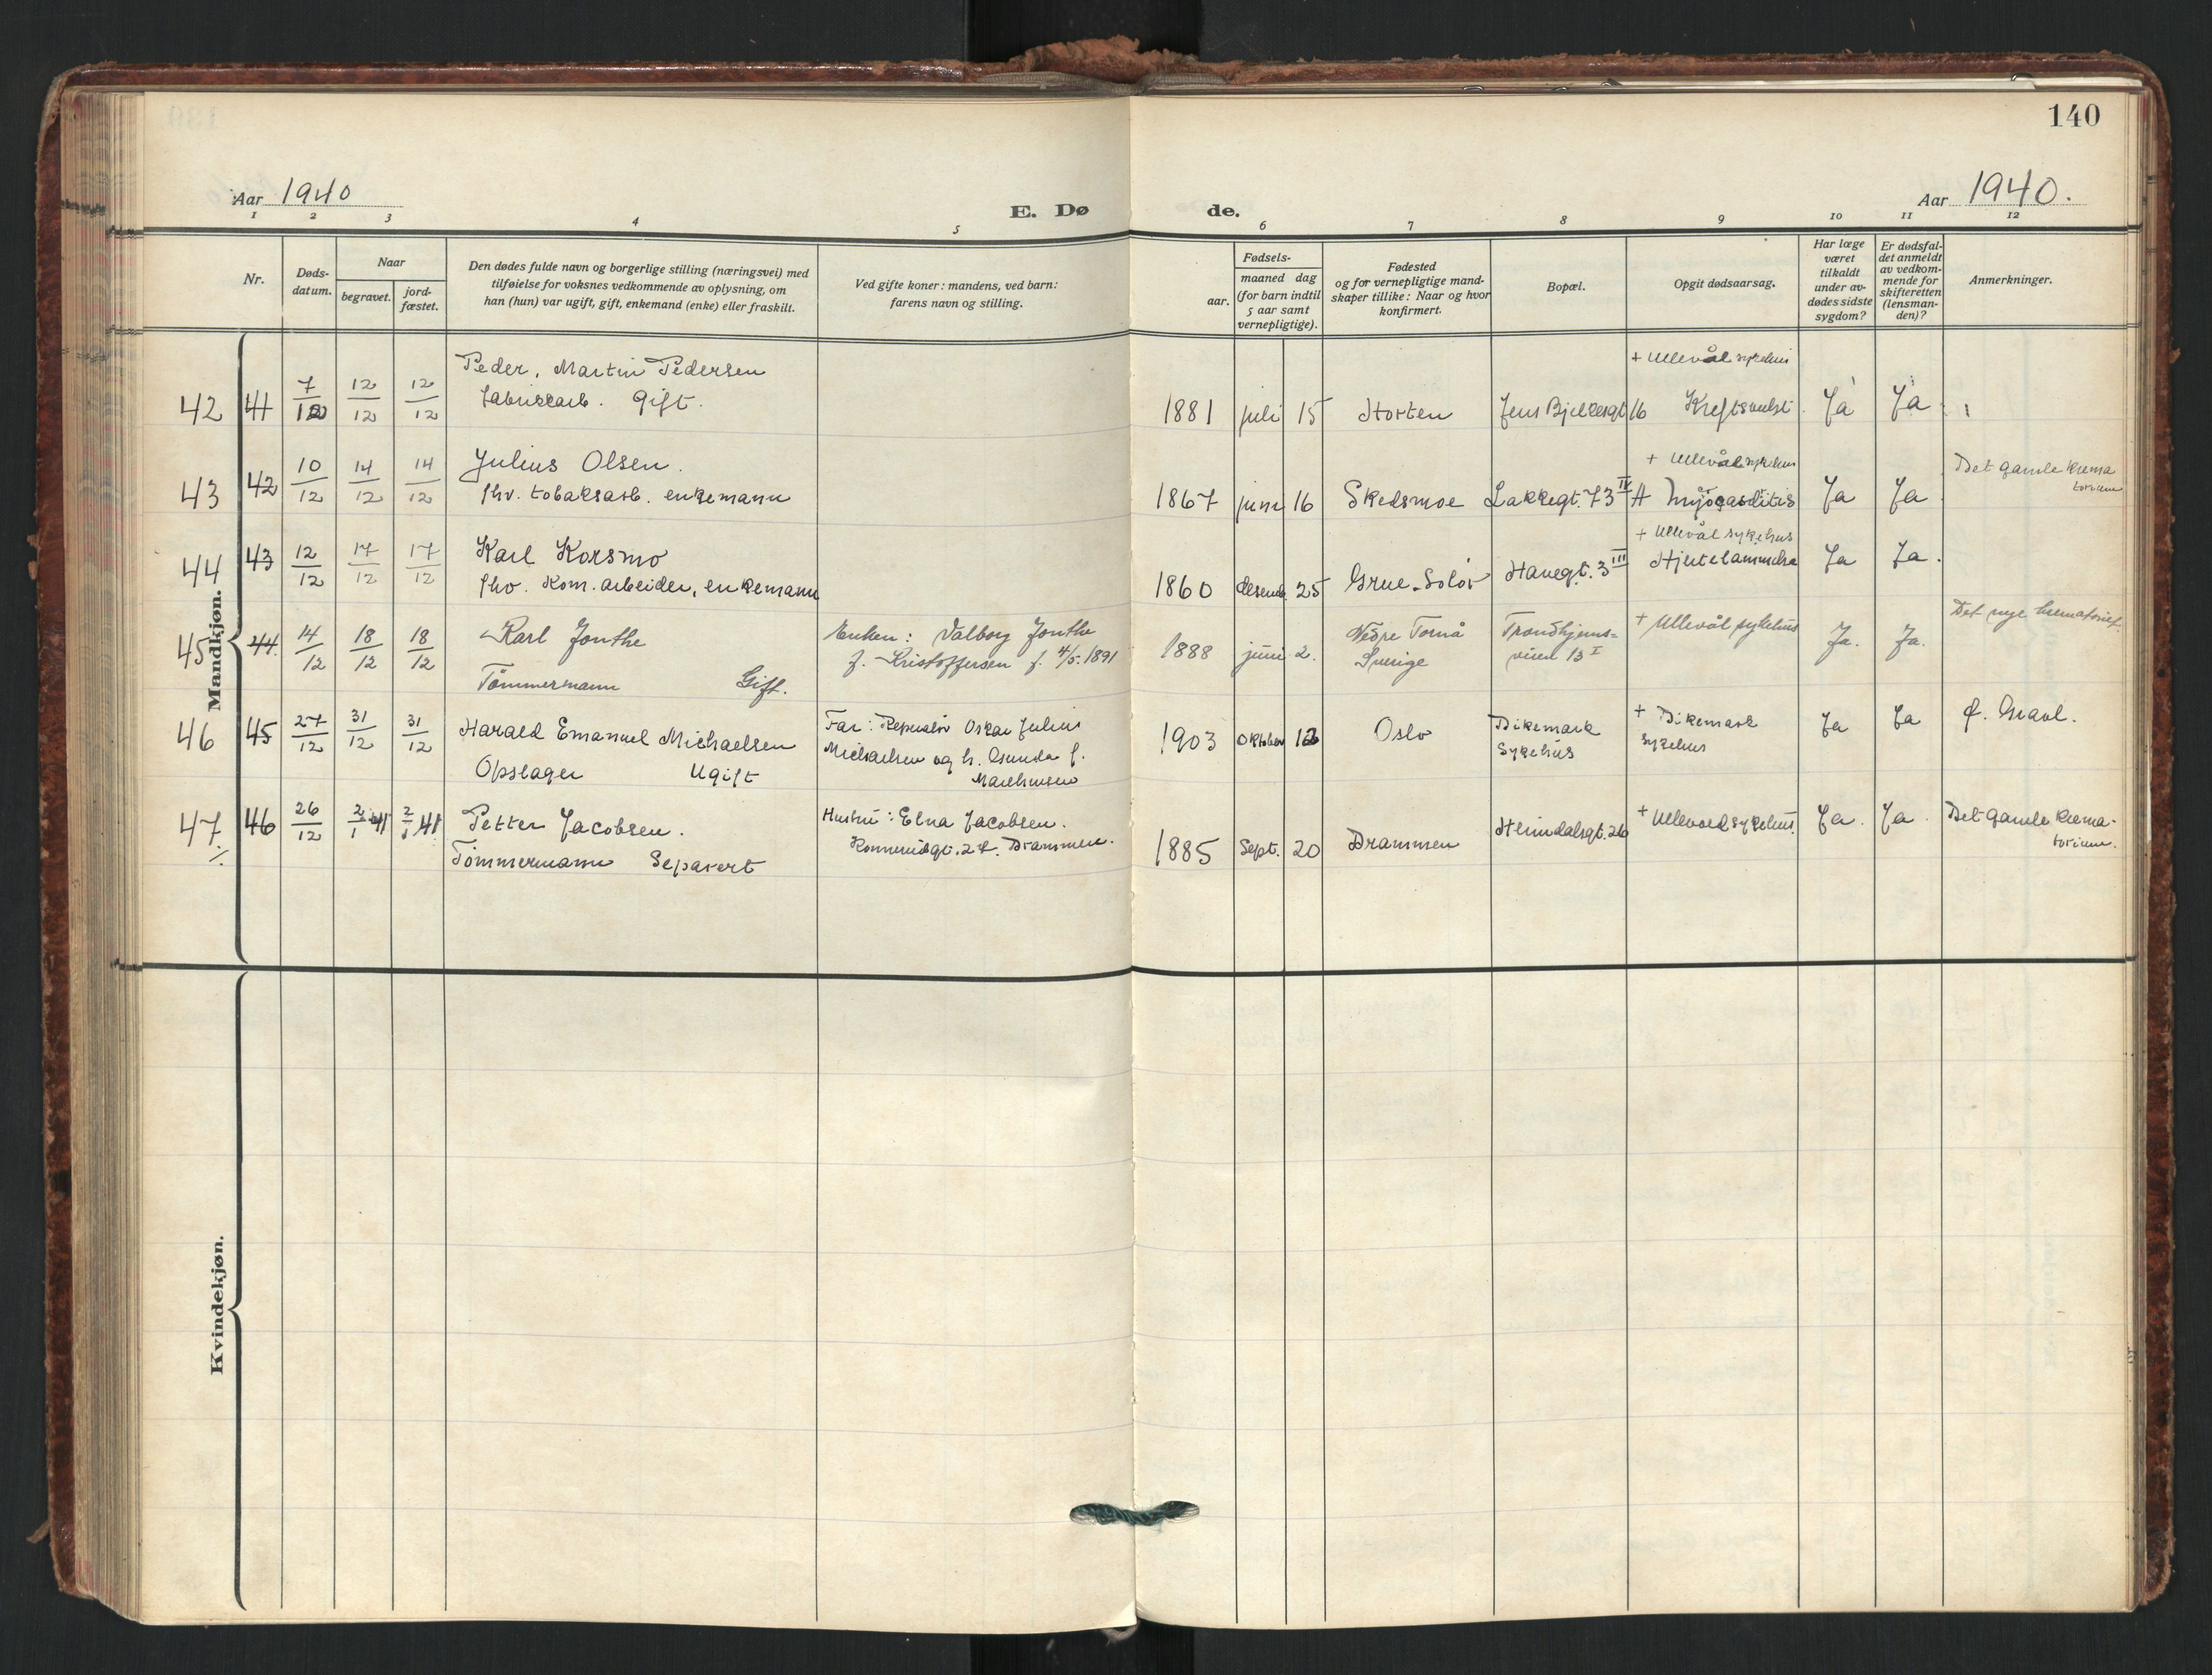 140
Aar 1940
E. Dø
de.
Aar 1940.
1 2 3 4 5 6 7 8 9 10 11 12
Nr.
Døds-
datum.
Naar
begravet.
jord-
fæstet.
Den dødes fulde navn og borgerlige stilling (næringsvei) med
tilføielse for voksnes vedkommende av oplysning, om
han (hun) var ugift, gift, enkemand (enke) eller fraskilt.
Ved gifte koner: mandens, ved barn:
farens navn og stilling.
Fødsels-
aar.
maaned dag
(for barn indtil
5 aar samt
vernepligtige).
Fødested
og for vernepligtige mand-
skaper tillike: Naar og hvor
konfirmert.
Bopæl.
Opgit dødsaarsag.
Har læge
været
tilkaldt
under av-
dødes sidste
sygdom?
Er dødsfal-
det anmeldt
av vedkom-
mende for
skifteretten
(lensman-
den)?
Anmerkninger.
Mandkjøn.
42 41 7/12 12/12 12/12
Peder, Martin Pedersen
Fabrikkarb. Gift.
1881 juli 15 Horten Jens Bjelkesgt 16
+ Ullevål sykehus
Kreftsvulst Ja Ja
43 42 10/12 14/12 14/12
Julius Olsen.
fhv. tobaksarb. enkemann
1867 juni 16 Skedsmoe Lakkegt. 73 IV A
+ Ullevål sykehus
Myocarditis Ja Ja
Det gamle krema
torium
44 43 12/12 17/12 17/12
Karl Korsmo
fhv. kom. arbeider, enkemann
1860 desemb. 25 Grue-Solør Havegt. 3 III
+ Ullevål sykehus
Hjertelammelse Ja Ja.
45 44. 14/12 18/12 18/12
Karl Jonthe
Tömmermann Gift.
Enken: Valborg Jonthe
f. Kristoffersen f. 4/5. 1891
1888 juni 2. Nedre Tornå
Sverige
Trondhjems=
veien 13 I
+ Ullevål sykehus
Ja. Ja.
Det nye krematoriet.
46 45 27/12 31/12 31/12
Harald Emanuel Michaelsen
Opslager Ugift
Far: Repslager Oskar Julius
Michaelsen og h. Gunda f.
Mathiesen
1903 Oktober 12 Oslo
Dikemark
Sykehus
+ Dikemark
sykehus
Ja Ja
Ø. Gravl.
47 46 26/12 2/1 41 2/1 41
Petter Jacobsen.
Tømmermann Separert
Hustru: Elna Jacobsen.
Drammen.
1885 Sept. 20 Drammen Heimdalsgt. 26
+ Ullevoed sykehus. Ja. Ja.
Det gamle krema-
torium.
Kvindekjøn.